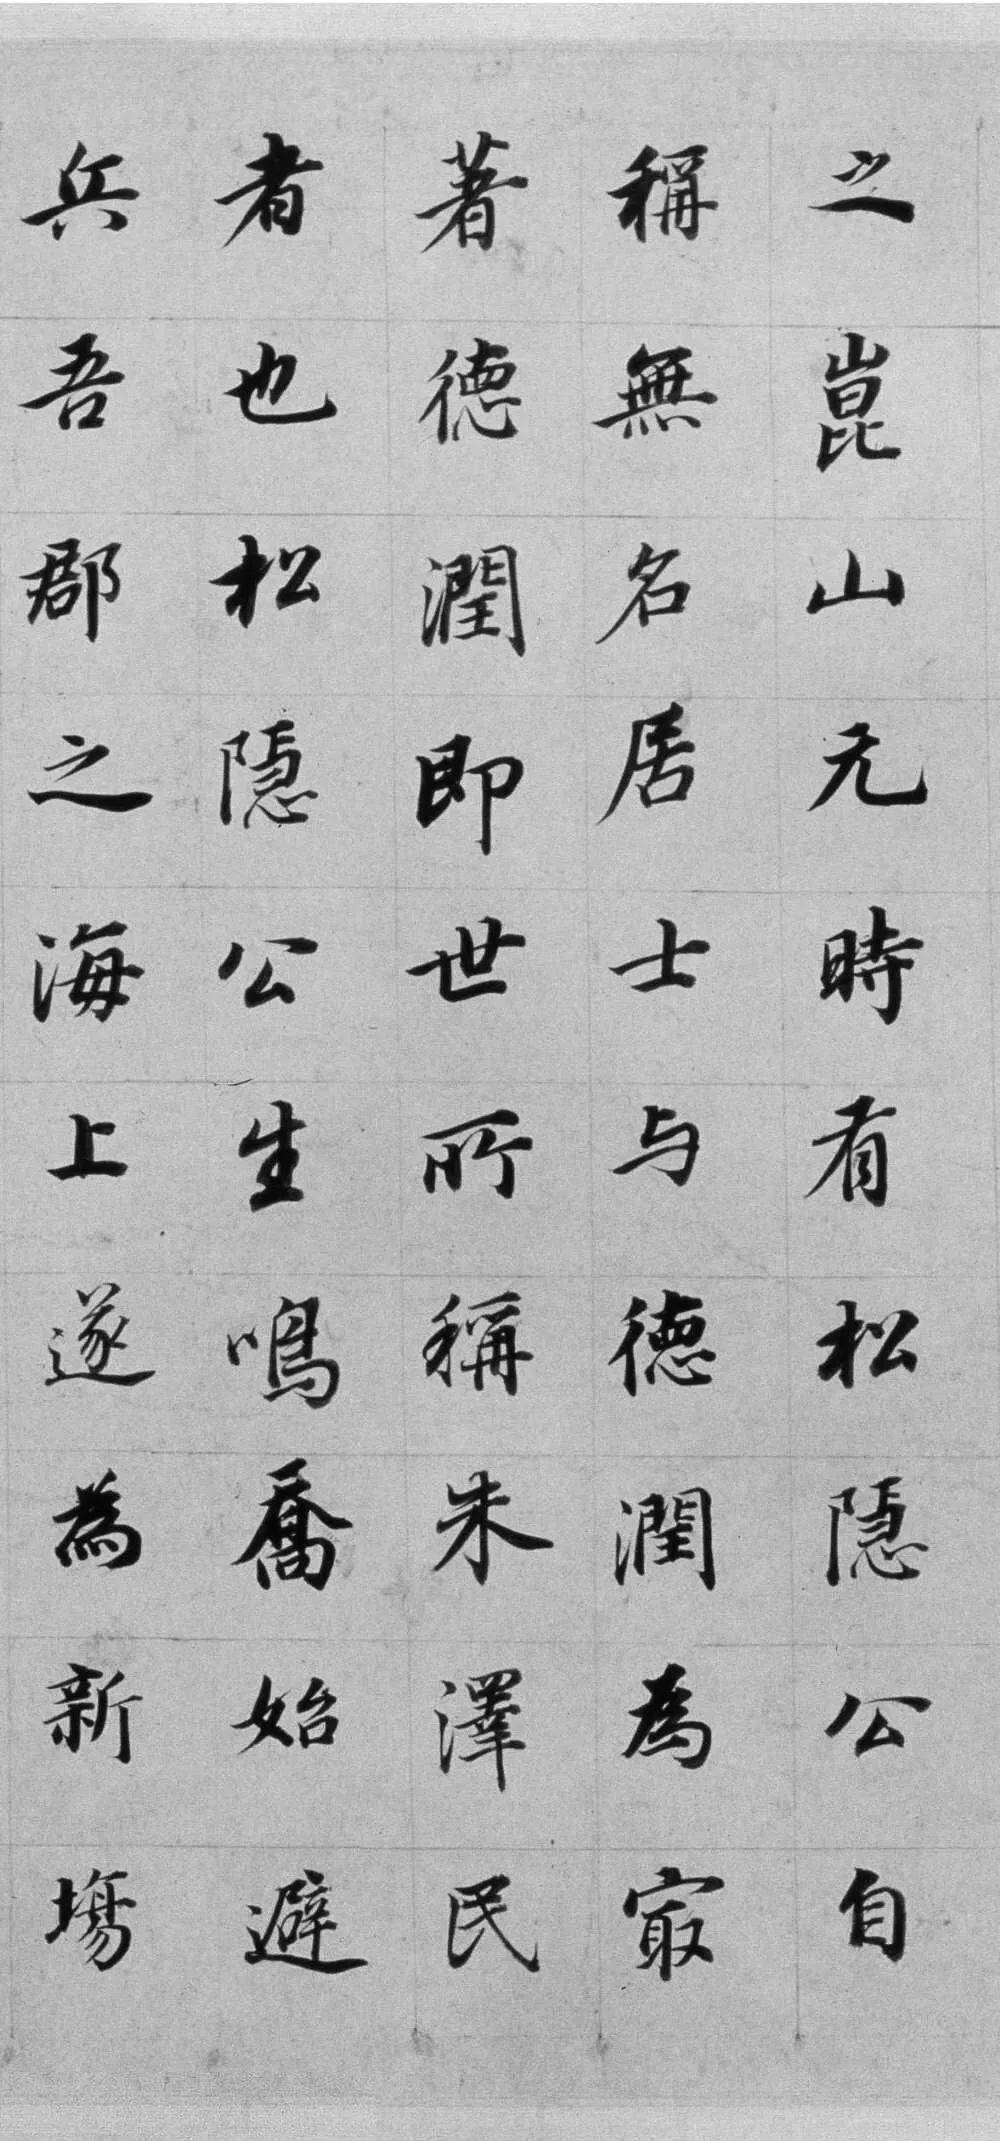 之崑山元時有松隱公自
稱無名居士与德潤為㝡
著德潤即世所稱朱澤民
者也松隱公生鳴喬始避
兵吾郡之海上遂為新場